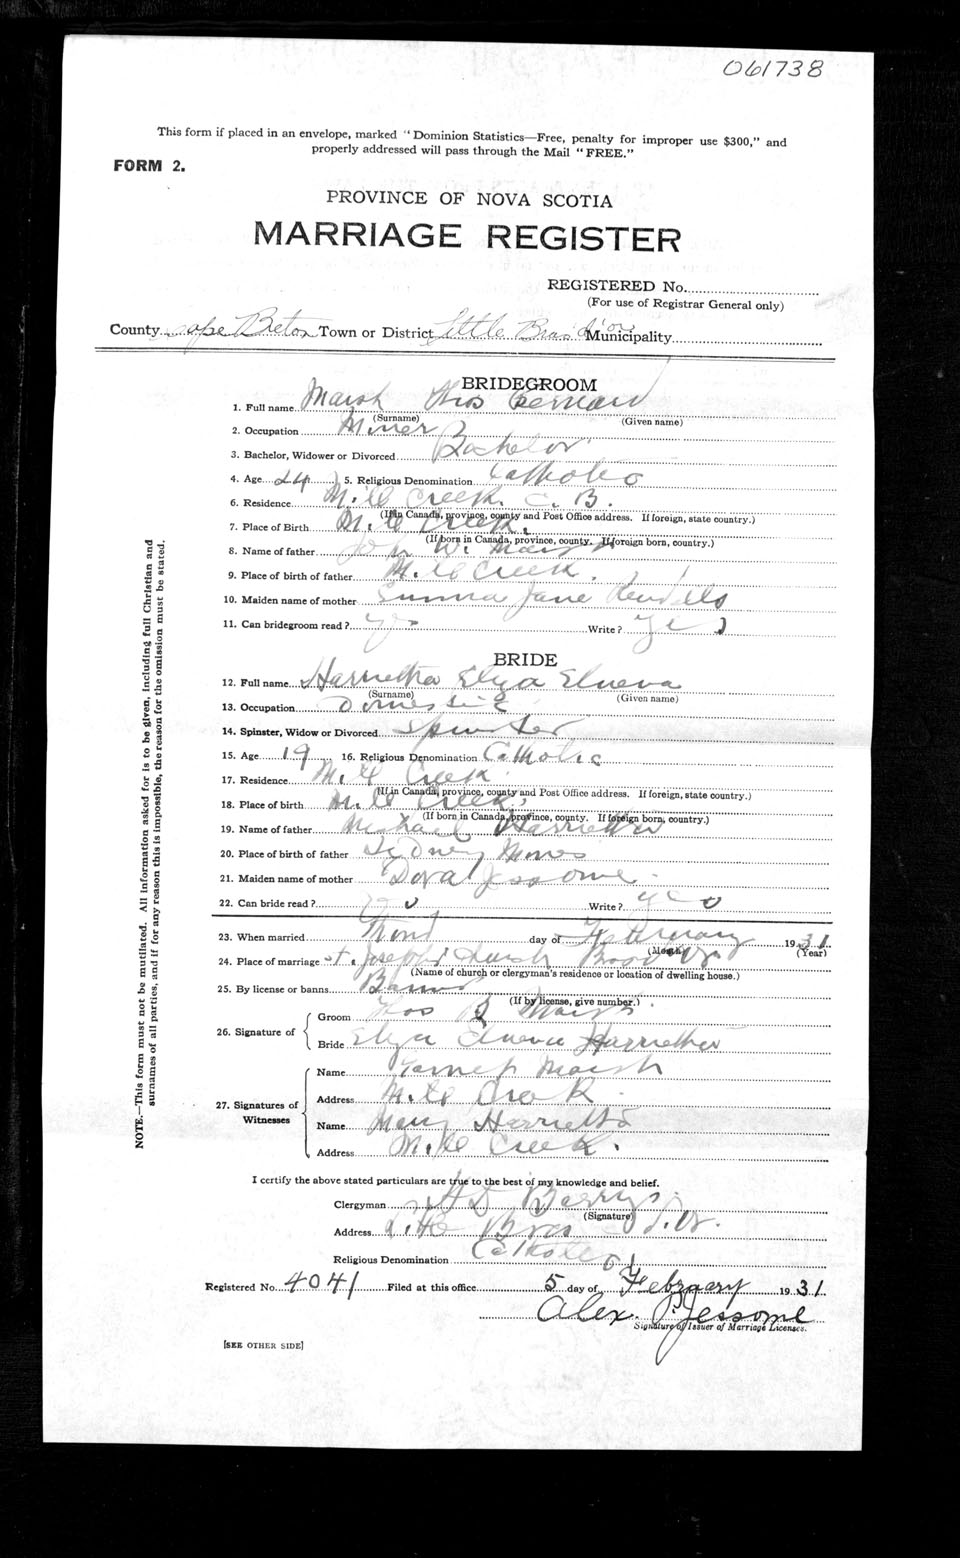 061738
This form if placed in an envelope, marked "Dominion Statistics—Free, penalty for improper use $300," and
properly addressed will pass through the Mail "FREE."
FORM 2.
PROVINCE OF NOVA SCOTIA
MARRIAGE REGISTER
REGISTERED No.
(For use of Registrar General only)
County Cape Breton Town or District Little Bras d'or Municipality
BRIDEGROOM
1. Full name Marsh Thos Bernard
(Surname) (Given name)
2. Occupation Miner
3. Bachelor, Widower or Divorced Bachelor
4. Age 24 5. Religious Denomination Catholic
6. Residence Mill Creek C. B.
(If in Canada, province, county and Post Office address. If foreign, state country.)
7. Place of Birth Mill Creek
(If born in Canada, province, county. If foreign born, country.)
8. Name of father John W. Marsh
9. Place of birth of father Mill Creek.
10. Maiden name of mother Jane
11. Can bridegroom read? yes Write? yes
BRIDE
12. Full name Harrietha Elyza
(Surname) (Given name)
13. Occupation Domestic
14. Spinster, Widow or Divorced Spinster
15. Age 19 16. Religious Denomination Catholic
17. Residence Mill Creek
(If in Canada, province, county and Post Office address. If foreign, state country.)
18. Place of birth Mill Creek
(If born in Canada, province, county. If foreign born, country.)
19. Name of father Michael
20. Place of birth of father Sydney Mines
21. Maiden name of mother Dora Jessome
22. Can bride read? Write? yes
23. When married day of February 1931
(Month) (Year)
24. Place of marriage St. Joseph's
(Name of church or clergyman's residence or location of dwelling house.)
25. By license or banns Banns
(If by license, give number.)
26. Signature of
Groom Thos B Marsh
Bride Elyza
27. Signatures of Witnesses
Name Marsh
Address Mill Creek
Name Mary
Address Mill Creek.
I certify the above stated particulars are true to the best of my knowledge and belief.
Clergyman
(Signature)
Address Little Bras d'Or.
Religious Denomination Catholic
Registered No. 4041 Filed at this office 5 day of February 1931
Alex. P. Jessome
Signature of Issuer of Marriage Licenses.
[SEE OTHER SIDE]
NOTE.—This form must not be mutilated. All information asked for is to be given, including full Christian and
surnames of all parties, and if for any reason this is impossible, the reason for the omission must be stated.